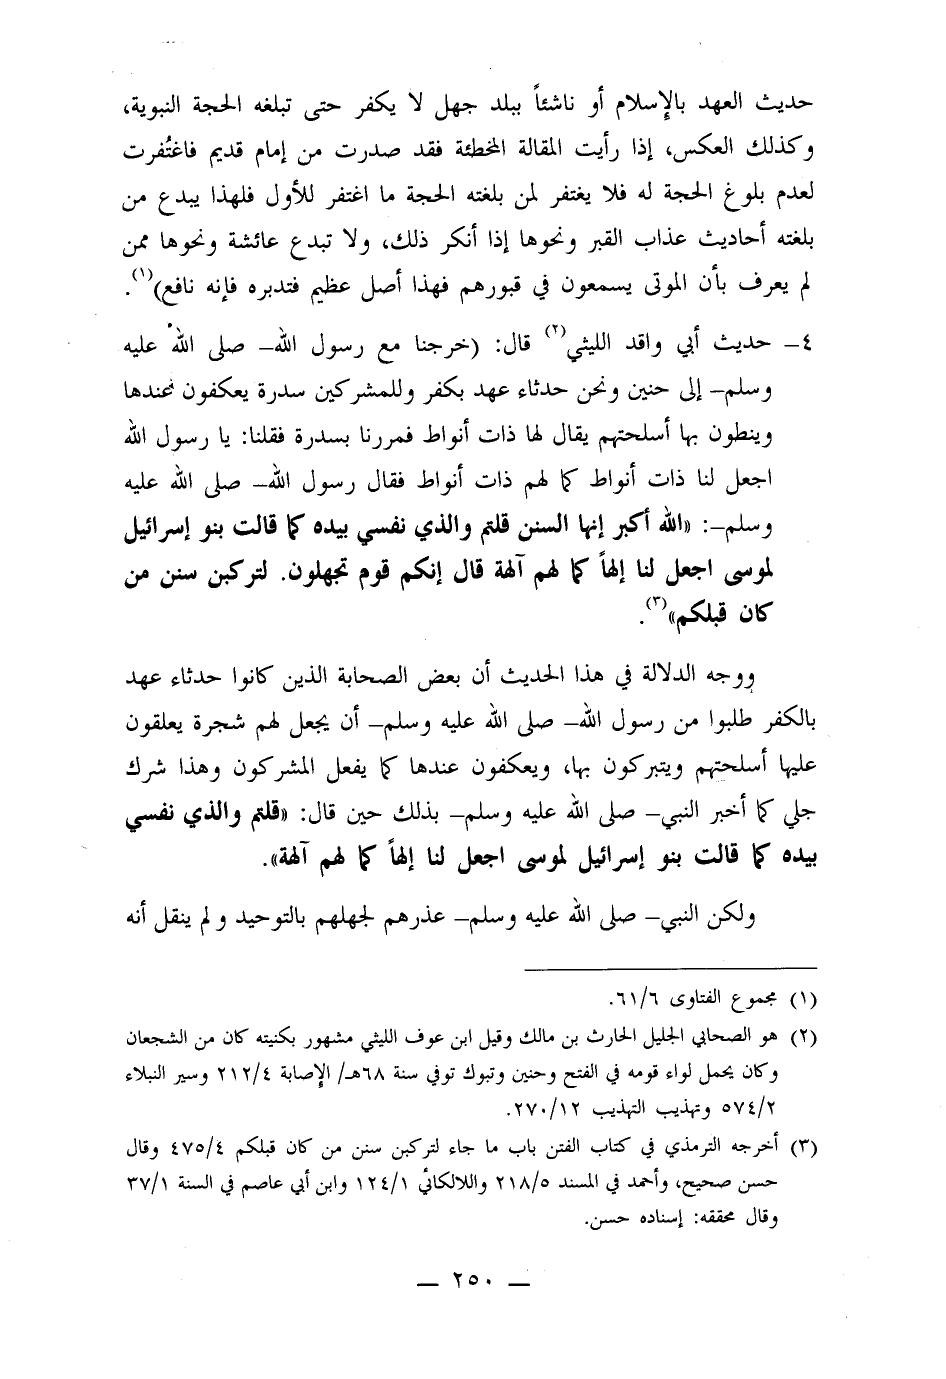 حديث العهد بالإسلام أو ناشئاً ببلد جهل لا يكفر حتى تبلغه الحجة النبوية،
وكذلك العكس، إذا رأيت المقالة المخطئة فقد صدرت من إمام قديم فاغتُفرت
لعدم بلوغ الحجة له فلا يغتفر لمن بلغته الحجة ما اغتفر للأول فلهذا يبدع من
بلغته أحاديث عذاب القبر ونحوها إذا أنكر ذلك، ولا تبدع عائشة ونحوها ممن
لم يعرف بأن الموتى يسمعون في قبورهم فهذا أصل عظيم فتدبره فإنه نافع)(١).
٤– حديث أبي واقد الليثي(٢) قال: (خرجنا مع رسول الله– صلى الله عليه
وسلم– إلى حنين ونحن حدثاء عهد بكفر وللمشركين سدرة يعكفون عندها
وينطون بها أسلحتهم يقال لها ذات أنواط فمررنا بسدرة فقلنا: يا رسول الله
اجعل لنا ذات أنواط كما لهم ذات أنواط فقال رسول الله– صلى الله عليه
وسلم–: «الله أكبر إنها السنن قلتم والذي نفسي بيده كما قالت بنو إسرائيل
لموسى اجعل لنا إلهاً كما لهم آلهة قال إنكم قوم تجهلون. لتركبن سنن من
كان قبلكم»(٣).
ووجه الدلالة في هذا الحديث أن بعض الصحابة الذين كانوا حدثاء عهد
بالكفر طلبوا من رسول الله– صلى الله عليه وسلم– أن يجعل لهم شجرة يعلقون
عليها أسلحتهم ويتبركون بها، ويعكفون عندها كما يفعل المشركون وهذا شرك
جلي كما أخبر النبي– صلى الله عليه وسلم– بذلك حين قال: «قلتم والذي نفسي
بيده كما قالت بنو إسرائيل لموسى اجعل لنا إلهاً كما لهم آلهة».
ولكن النبي– صلى الله عليه وسلم– عذرهم لجهلهم بالتوحيد ولم ينقل أنه
(١) مجموع الفتاوى ٦١/٦.
(٢) هو الصحابي الجليل الحارث بن مالك وقيل ابن عوف الليثي مشهور بكنيته كان من الشجعان
وكان يحمل لواء قومه في الفتح وحنين وتبوك توفي سنة ٦٨هـ/ الإصابة ٢١٢/٤ وسير النبلاء
٥٧٤/٢ وتهذيب التهذيب ٢٧٠/١٢.
(٣) أخرجه الترمذي في كتاب الفتن باب ما جاء لتركبن سنن من كان قبلكم ٤٧٥/٤ وقال
حسن صحيح، وأحمد في المسند ٢١٨/٥ واللالكائي ١٢٤/١ وابن أبي عاصم في السنة ٣٧/١
وقال محققه: إسناده حسن.
— ٢٥٠ —